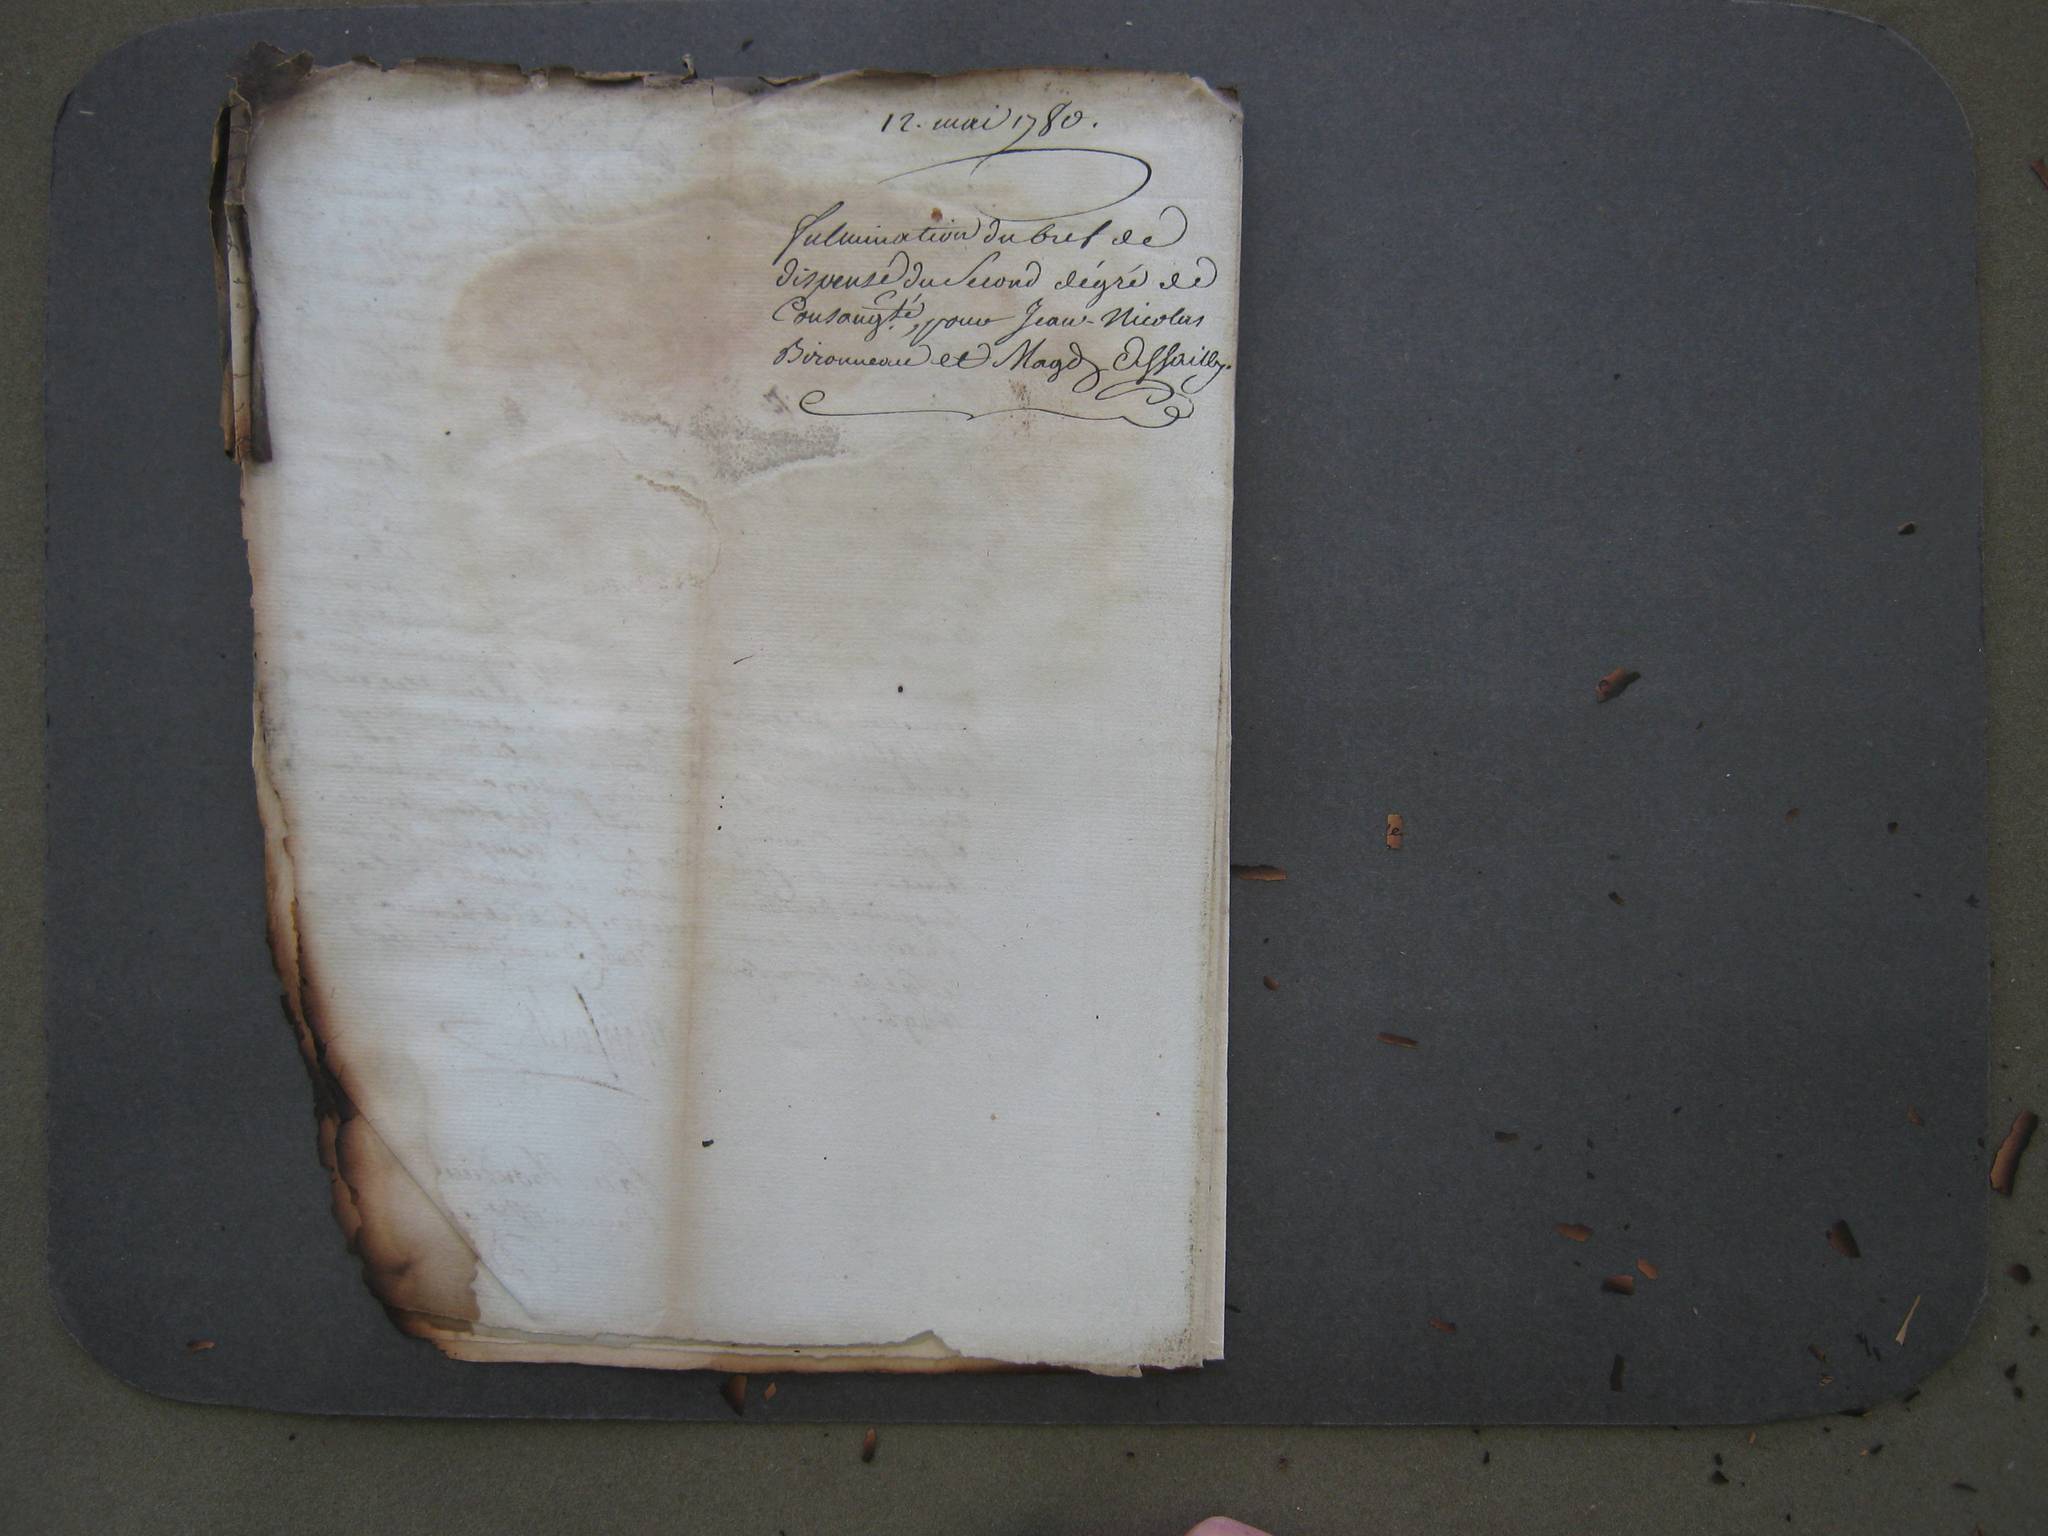 12. mai 1780.
fulmination du bref de
dispense du second dégré de
Consangté, pour Jean-Nicolas
Bironneau et Magd